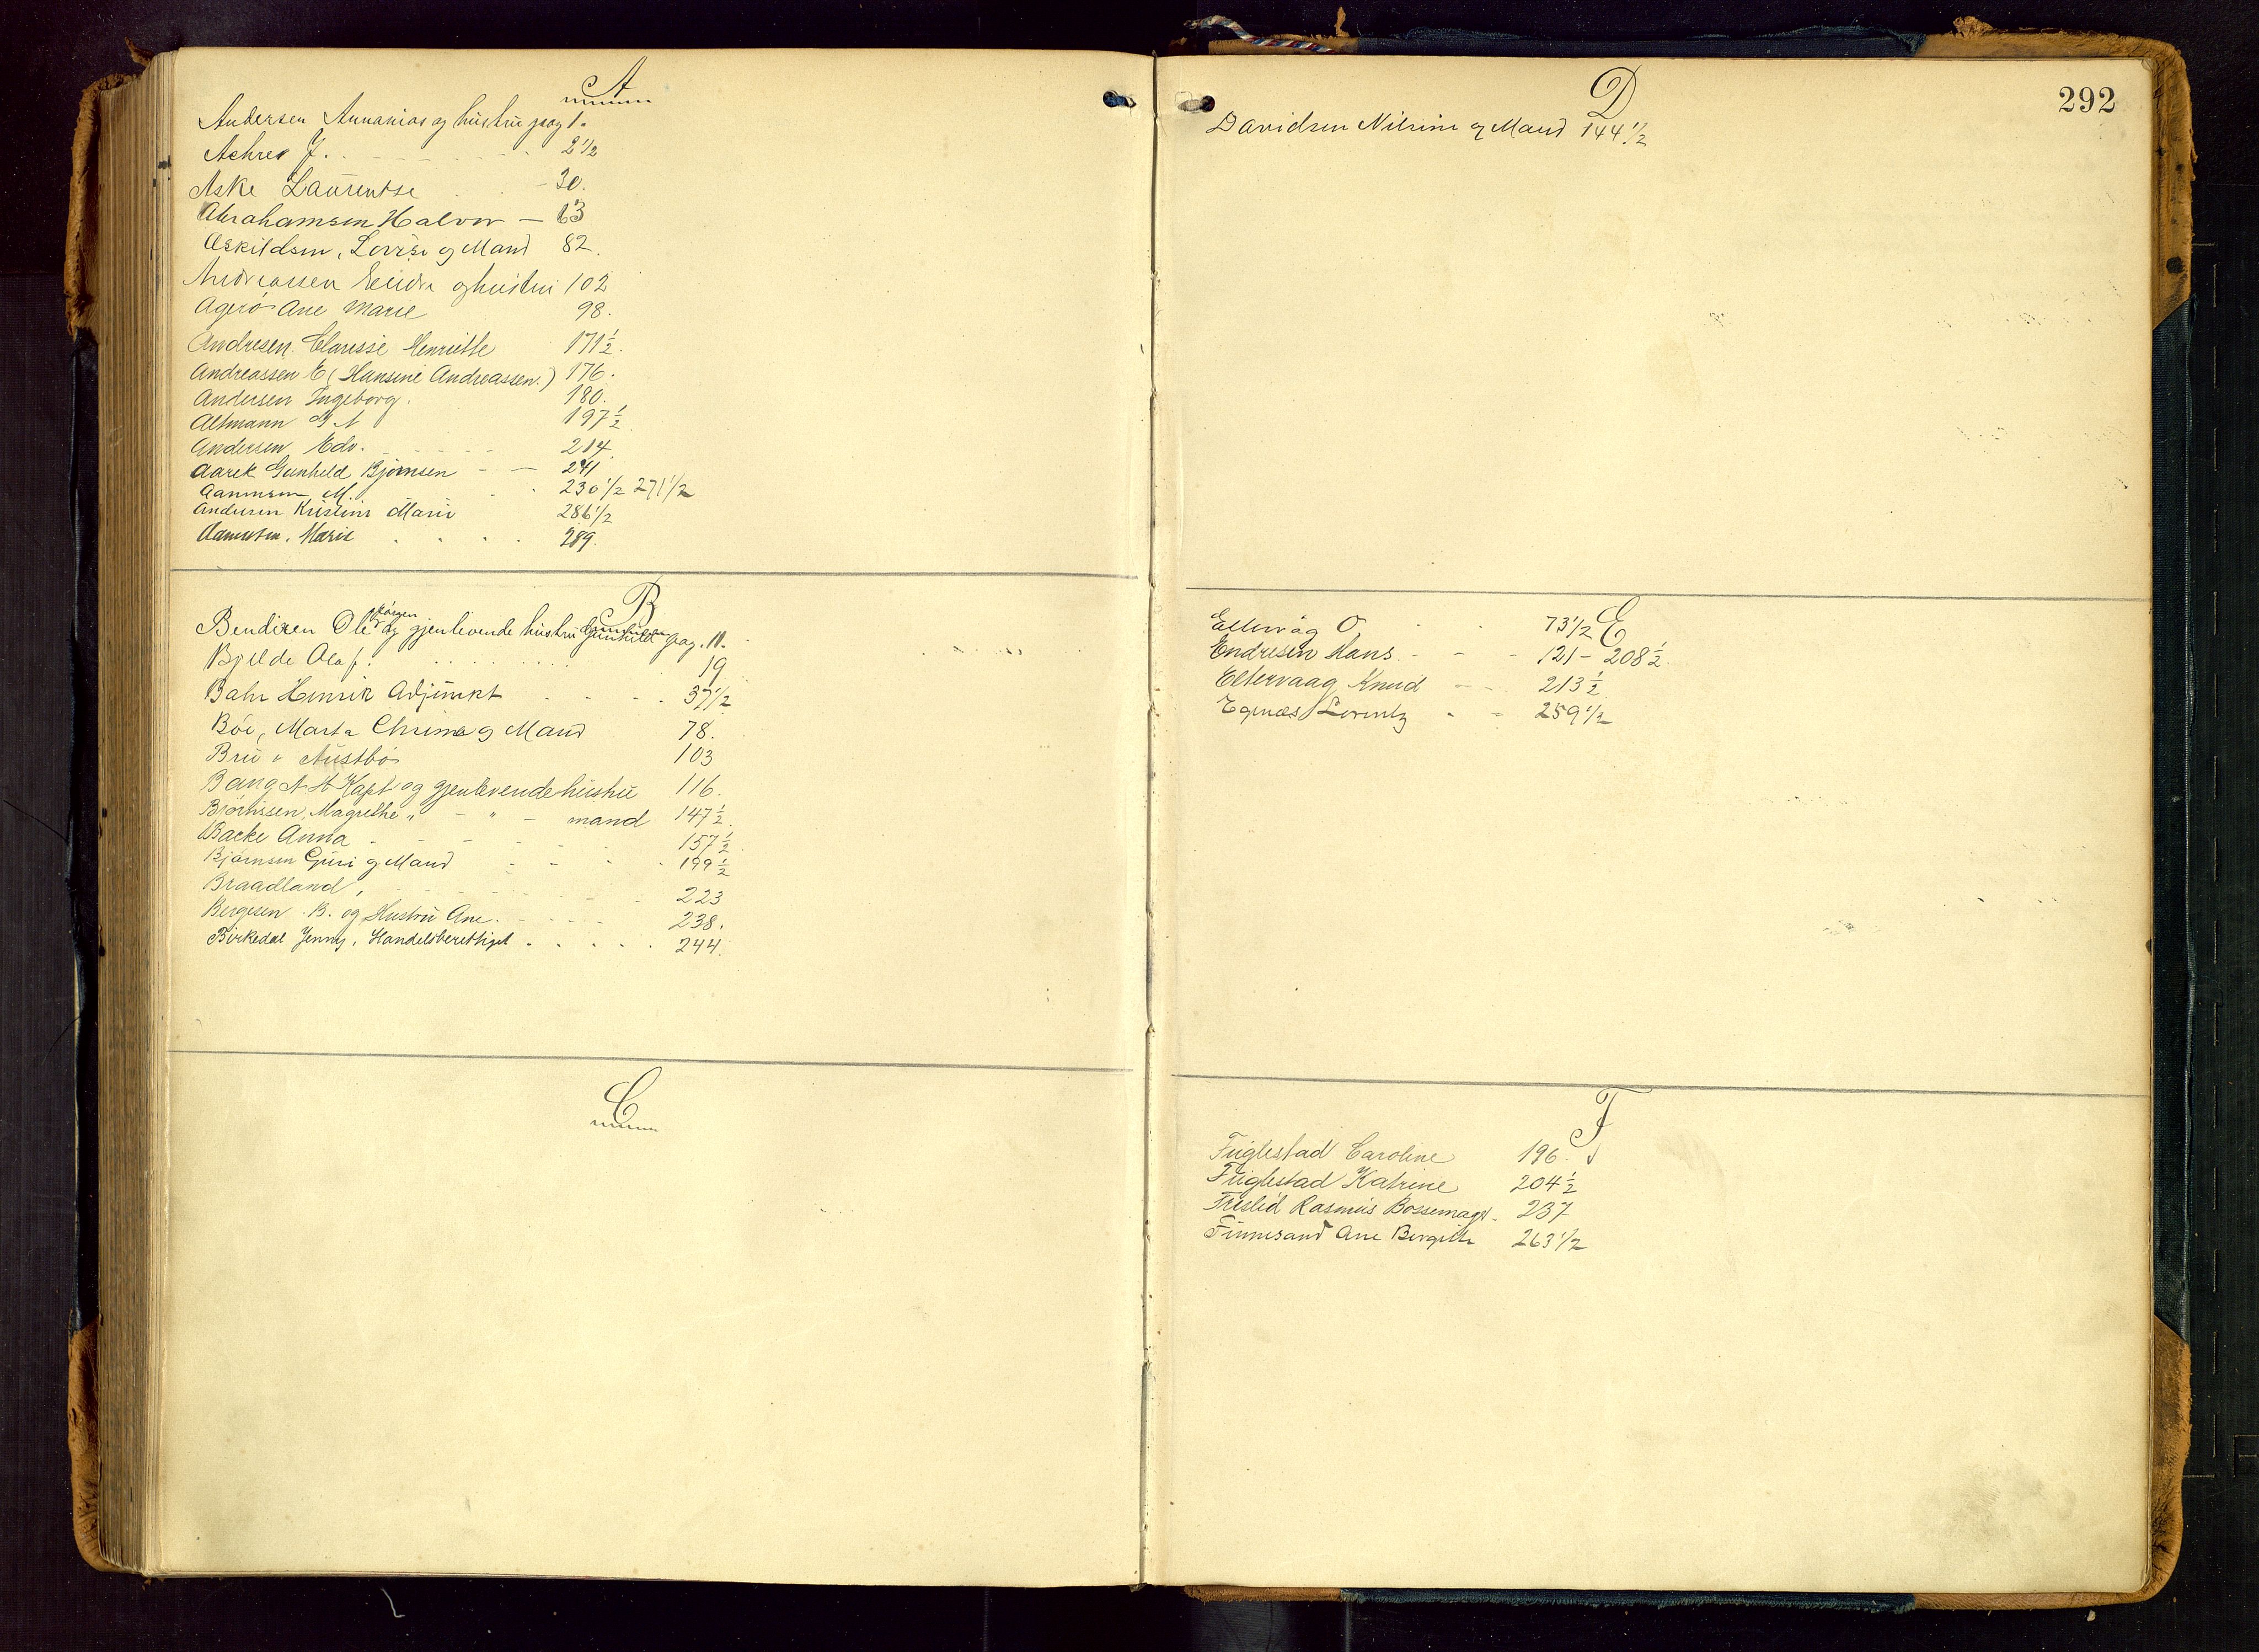 A
Andersen Annanias og hustru pag 1.
Achrer J. . 2 1/2
Aske Laurentse - 30.
Abrahamsen Halvor — 63
Askildsen, Lovise og Mand 82.
Andreassen og hustru 102
Agerø Ane Marie 98.
Andresen Clarisse Henriette 171 1/2.
Andreassen E (Hansine Andreassen.) 176.
Andersen Ingeborg. 180.
Altmann 197 1/2.
Andersen Edv. 214.
Aarek Gunhild Bjørnsen - — 241
Aanensen M. 230 1/2 271 1/2
Andersen Kristine Marie 286 1/2
Aanensen. Marie . . . . 289.
B
Bendixen Ole og gjenlevende hustru Gunhild pag. 11.
Bjelde Olaf. 19
Bahr Henrik Adjunkt 37 1/2
Böe, Marta og Mand 78.
Bru " Austbö 103
Bang Kapt og gjenlevende hustru 116.
Björnssen, Magrethe " - " - mand 147 1/2.
Backe Anna 157 1/2
Bjørnsen Guri og Mand 199 1/2
Braadland, 223
Bergesen. B. og Hustru Ane. 238.
Birkedal Jenny, Handelsberettiget . . . . . 244.
C
292
D
Davidsen Nilsine og Mand 144 1/2
E
Ellervåg O. 73 1/2
Endresen Hans. - - - 121 - 208 1/2.
Eltervaag Knud - - 213 1/2
Egenæs Lorentz - - 259 1/2
F
Fuglestad Caroline 196.
Fuglestad Katrine 204 1/2
Rasmus Bossemager. 237
Finnesand Ane Bergitte 263 1/2